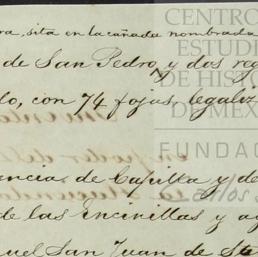 ra, sita en la cañada nombrada
de San Pedro, y dos reg
lo, con 74 fojas, legaliz
encia de Capilla y de
de las Encinillas y ag
uel San Juan de Sta
CENTRO
ESTUDI
DE HISTO
DE MÉXI
FUNDAC
Carlos S